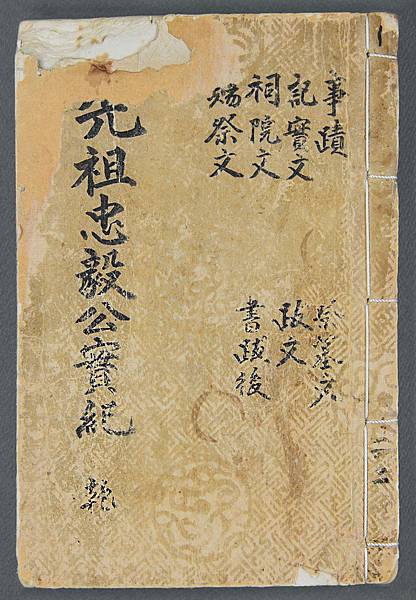 事蹟
記實文
祠院文
賜祭文
祭墓文
跋文
書跋後
先祖忠毅公實紀